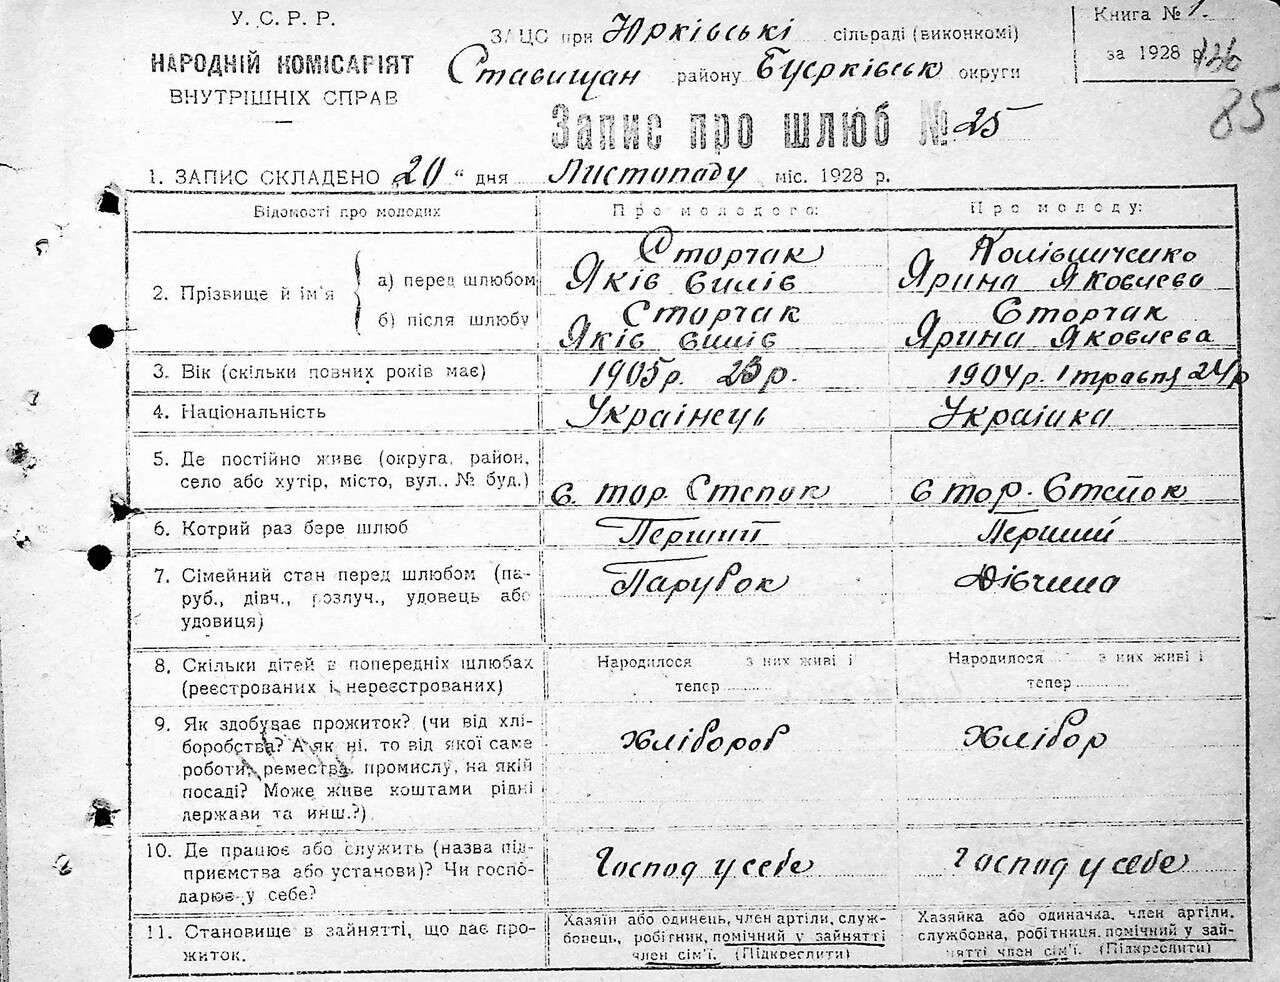 У. С. Р. Р.
НАРОДНІЙ КОМІСАРІЯТ
ВНУТРІШНІХ СПРАВ
ЗАЦС при Юрківські сільраді (виконкомі)
Ставищан району Бцерківськ округи
Книга № 1.
за 1928 р.
136
85
Запис про шлюб № 25
1. ЗАПИС СКЛАДЕНО „20“ дня Листопаду міс. 1928 р.
Відомості про молодих
Про молодого:
Про молоду:
2. Прізвище й ім'я
а) перед шлюбом
Сторчак
Яків
Ярина Яковлева
б) після шлюбу
Сторчак
Яків
Сторчак
Ярина Яковлева
3. Вік (скільки повних років має)
1905 р. 23 р.
1904 р. 1 травня 24 р
4. Національність
Українець
Українка
5. Де постійно живе (округа, район,
село або хутір, місто, вул., № буд.)
с. тор. Степок
с тор. Степок
6. Котрий раз бере шлюб
Перший
Перший
7. Сімейний стан перед шлюбом (па-
руб., дівч., розлуч., удовець або
удовиця)
Парубок
Дівчина
8. Скільки дітей в попередніх шлюбах
(реєстрованих і нереєстрованих)
Народилося з них живі і
тепер
Народилося з них живі і
тепер
9. Як здобуває прожиток? (чи від хлі-
боробства? А як ні, то від якої саме
роботи, ремества, промислу, на якій
посаді? Може живе коштами рідні
держави та инш.?)
хлібороб
хлібор
10. Де працює або служить (назва під-
приємства або установи)? Чи госпо-
дарює у себе?
Господ у себе
Господ у себе
11. Становище в зайнятті, що дає про-
житок.
Хазяїн або одинець, член артіли, служ-
бовець, робітник, помічний у зайнятті
член сім'ї. (Підкреслити)
Хазяйка або одиначка, член артіли,
службовка, робітниця, помічний у зай-
нятті член сім'ї. (Підкреслити)